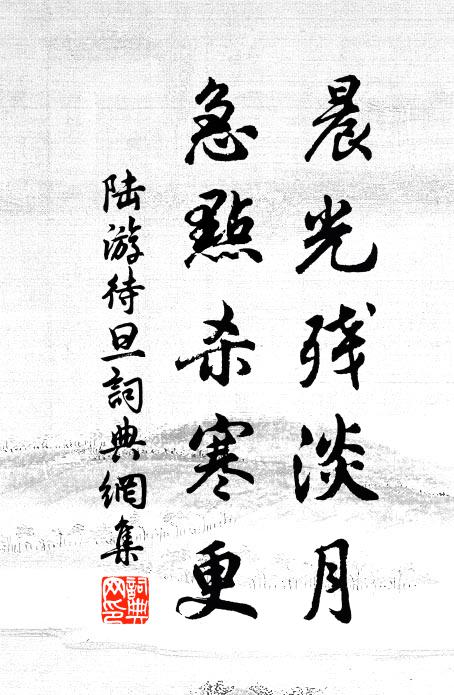 晨光残淡月
急點杀寒更
陆游待旦詞典網集
詞典网印